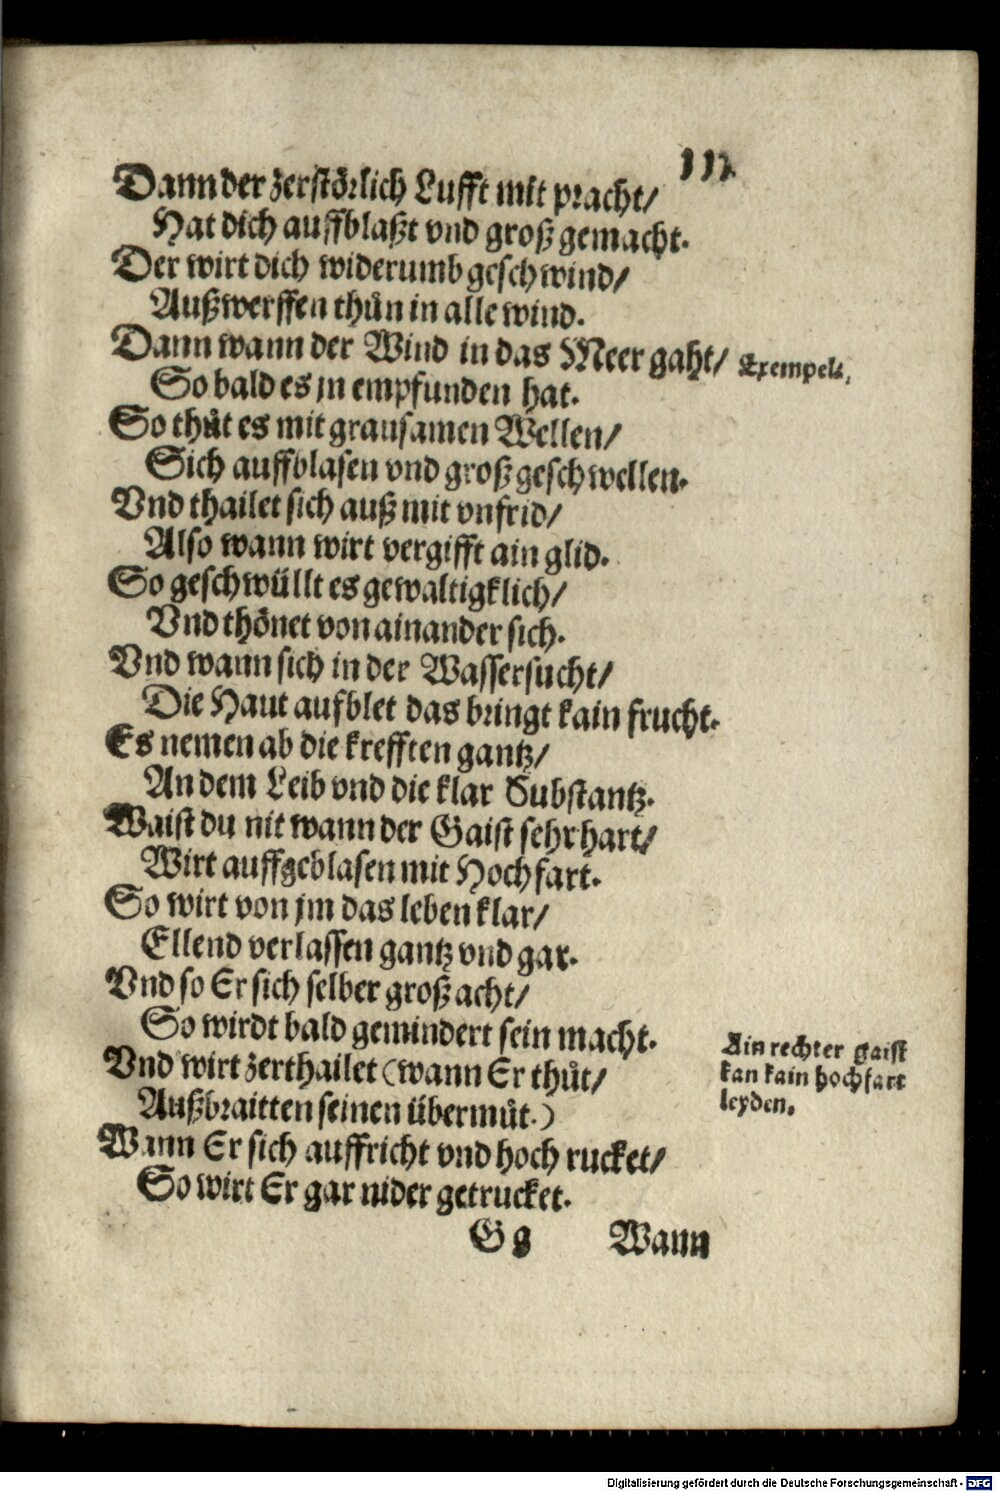 117
Dann der zerstörlich Lufft mit pracht/
Hat dich auffblaßt vnd groß gemacht.
Der wirt dich widerumb geschwind/
Außwerffen thůn in alle wind.
Dann wann der Wind in das Meer gaht/
Exempel.
So bald es jn empfunden hat.
So thůt es mit grausamen Wellen/
Sich auffblasen vnd groß geschwellen.
Vnd thailet sich auß mit vnfrid/
Also wann wirt vergifft ain glid.
So geschwüllt es gewaltigklich/
Vnd thönet von ainander sich.
Vnd wann sich in der Wassersucht/
Die Haut aufblet das bringt kain frucht.
Es nemen ab die krefften gantz/
An dem Leib vnd die klar Substantz.
Waist du nit wann der Gaist sehr hart/
Wirt auffgeblasen mit Hochfart.
So wirt von jm das leben klar/
Ellend verlassen gantz vnd gar.
Vnd so Er sich selber groß acht/
So wirdt bald gemindert sein macht.
Ain rechter gaist
kan kain hochfart
leyden.
Vnd wirt zerthailet (wann Er thůt/
Außbraitten seinen übermůt.)
Wann Er sich auffricht vnd hoch rucket/
So wirt Er gar nider getrucket.
Gg Wann
Digitalisierung gefördert durch die Deutsche Forschungsgemeinschaft - DFG